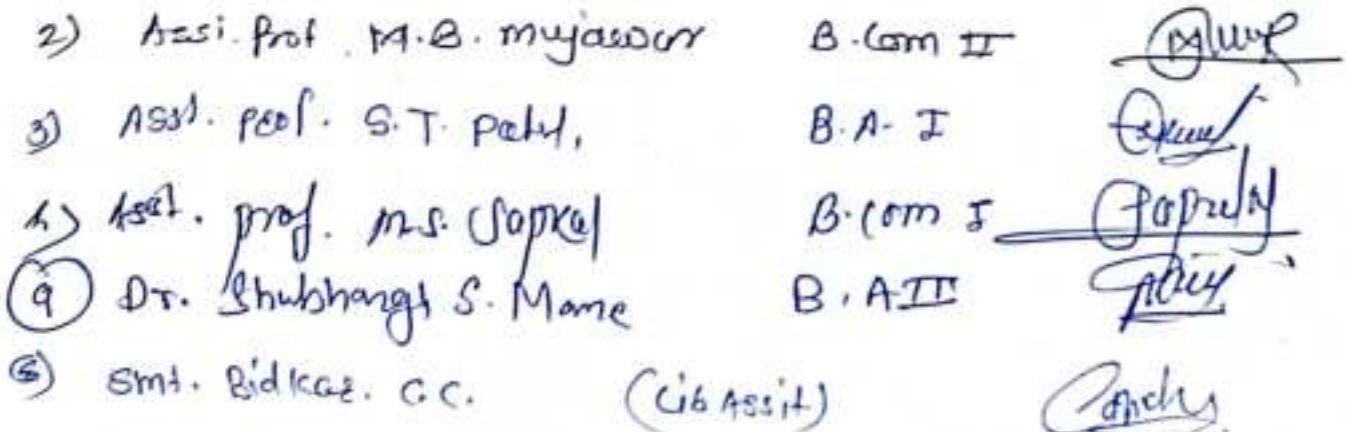 2) Assi. Prof M.B. mujawar B.Com II
3) Asst. Prof. S.T. Patil, B.A- I
4) Asst. prof. M.S. Sapkal B.com I
9) Dr. Shubhangi S. Mane B.A II
5) Smt. Bidkar. G.C. (Lib Assit)